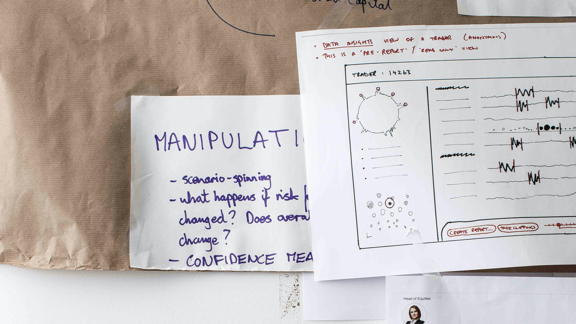 Capital
• DATA INSIGHTS VIEW OF A TRADER (ANONYMOUS)
• THIS IS A 'PRE-REPORT' / 'READ ONLY' VIEW
TRADER : 14263
MANIPULATI
- scenario-spinning
- what happens if risk
changed? Does overa
change?
- CONFIDENCE MEA
CREATE REPORT...
Head of Equities